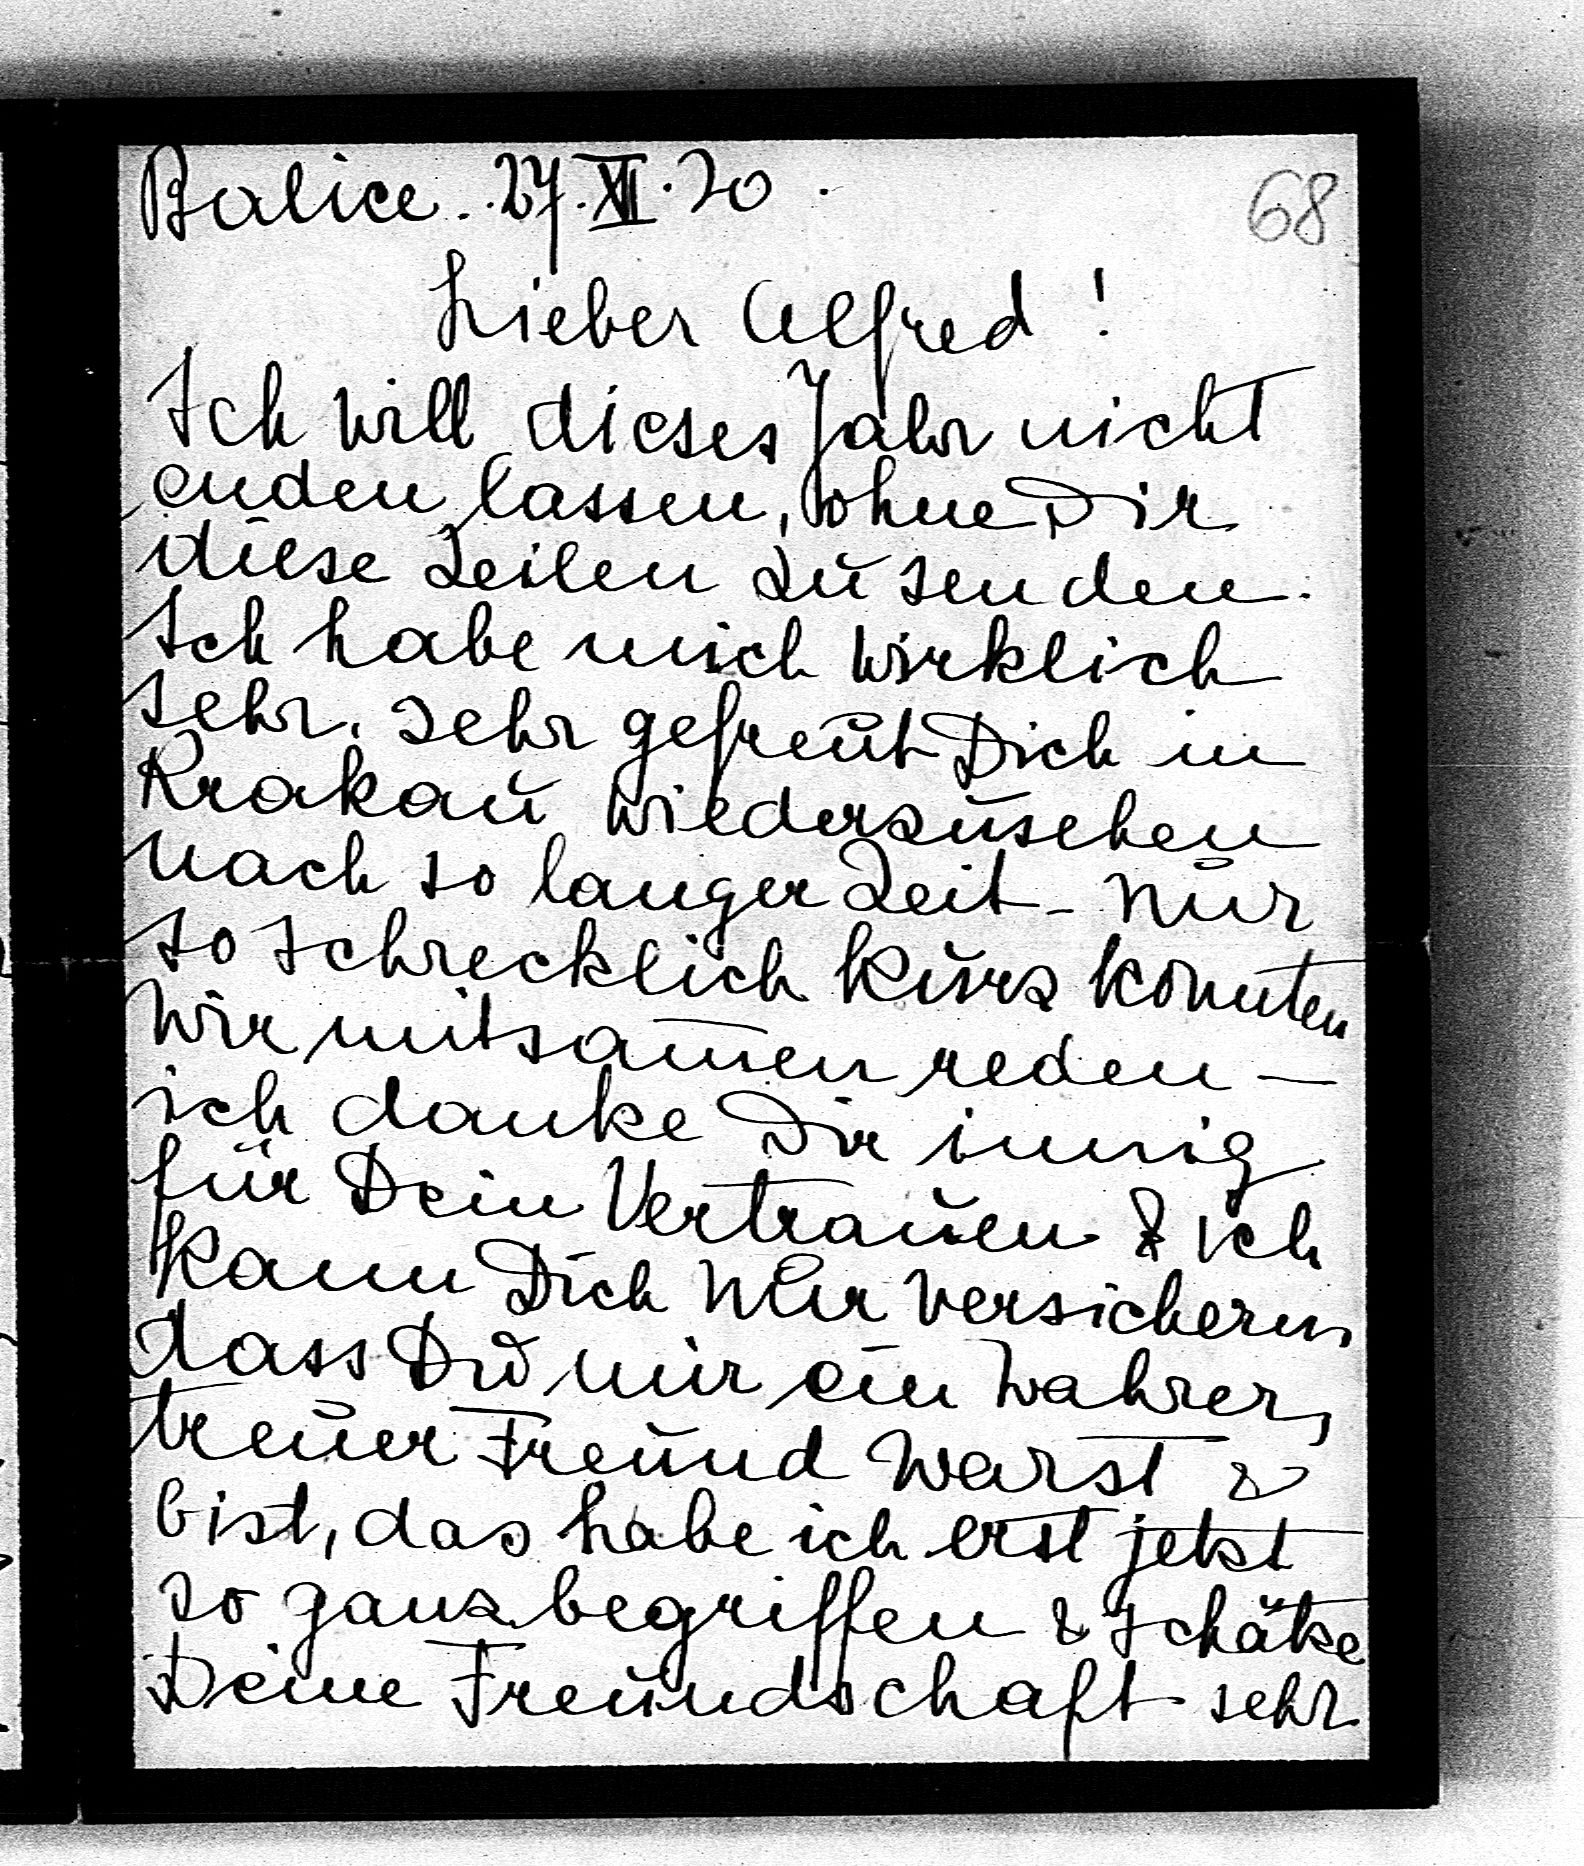 Balice. 27. XII. 20.
68
Lieber Alfred!
Ich will dieses Jahr nicht
enden lassen, ohne Dir
diese Zeilen zu senden.
Ich habe mich wirklich
sehr, sehr gefreut Dich in
Krakau wiederzusehen
nach so langer Zeit – nur
so schrecklich kurz konnten
wir mitsam̅en reden –
ich danke Dir innig
für Dein Vertrauen & ich
kann Dich nur versichern,
dass Du mir ein wahrer,
treuer Freund warst &
bist, das habe ich erst jetzt
so ganz begriffen & schätze
Deine Freundschaft sehr